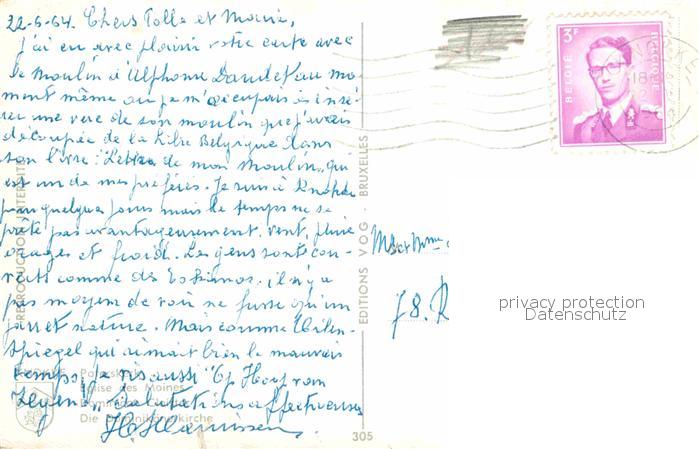 22-6-64. Chers Polle et Maria,
j'ai eu avec plaisir votre carte avec
le moulin d'Alphonse Daudet au mo
ment même où je m'occupais à insé-
rer une vue de son moulin que j'avais
découpée de la Libre Belgique dans
son livre: "Lettres de mon Moulin", qui
est un de mes préférés. Je suis à Knokke
pour quelques jours mais le temps ne se
prête pas avantageusement, vent, pluie
orages et froid. Les gens sont cou-
verts comme des Eskimos, il n'y a
pas moyen de voir ne fusse qu'un
jarret nature. Mais comme Uilen-
spiegel qui aimait bien le mauvais
temps, je ris aussi "Op Hoop van
Zegen". Salutations affectueuses
Paterskerk
Eglise des Moines
Die Dominikanerkirche
REPRODUCTION INTERDITE
EDITIONS VOG - BRUXELLES
305
M. et Mme,
78. R
3F
BELGIË
BELGIQUE
18
privacy protection
Datenschutz